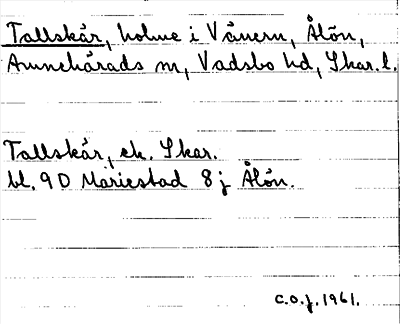 Tallskär, holme i Vänern, Ålön,
Amnehärads sn, Vadsbo hd, Skar. l.
Tallskär, ek. Skar.
bl. 9D Mariestad 8j Ålön.
C.O.J. 1961.